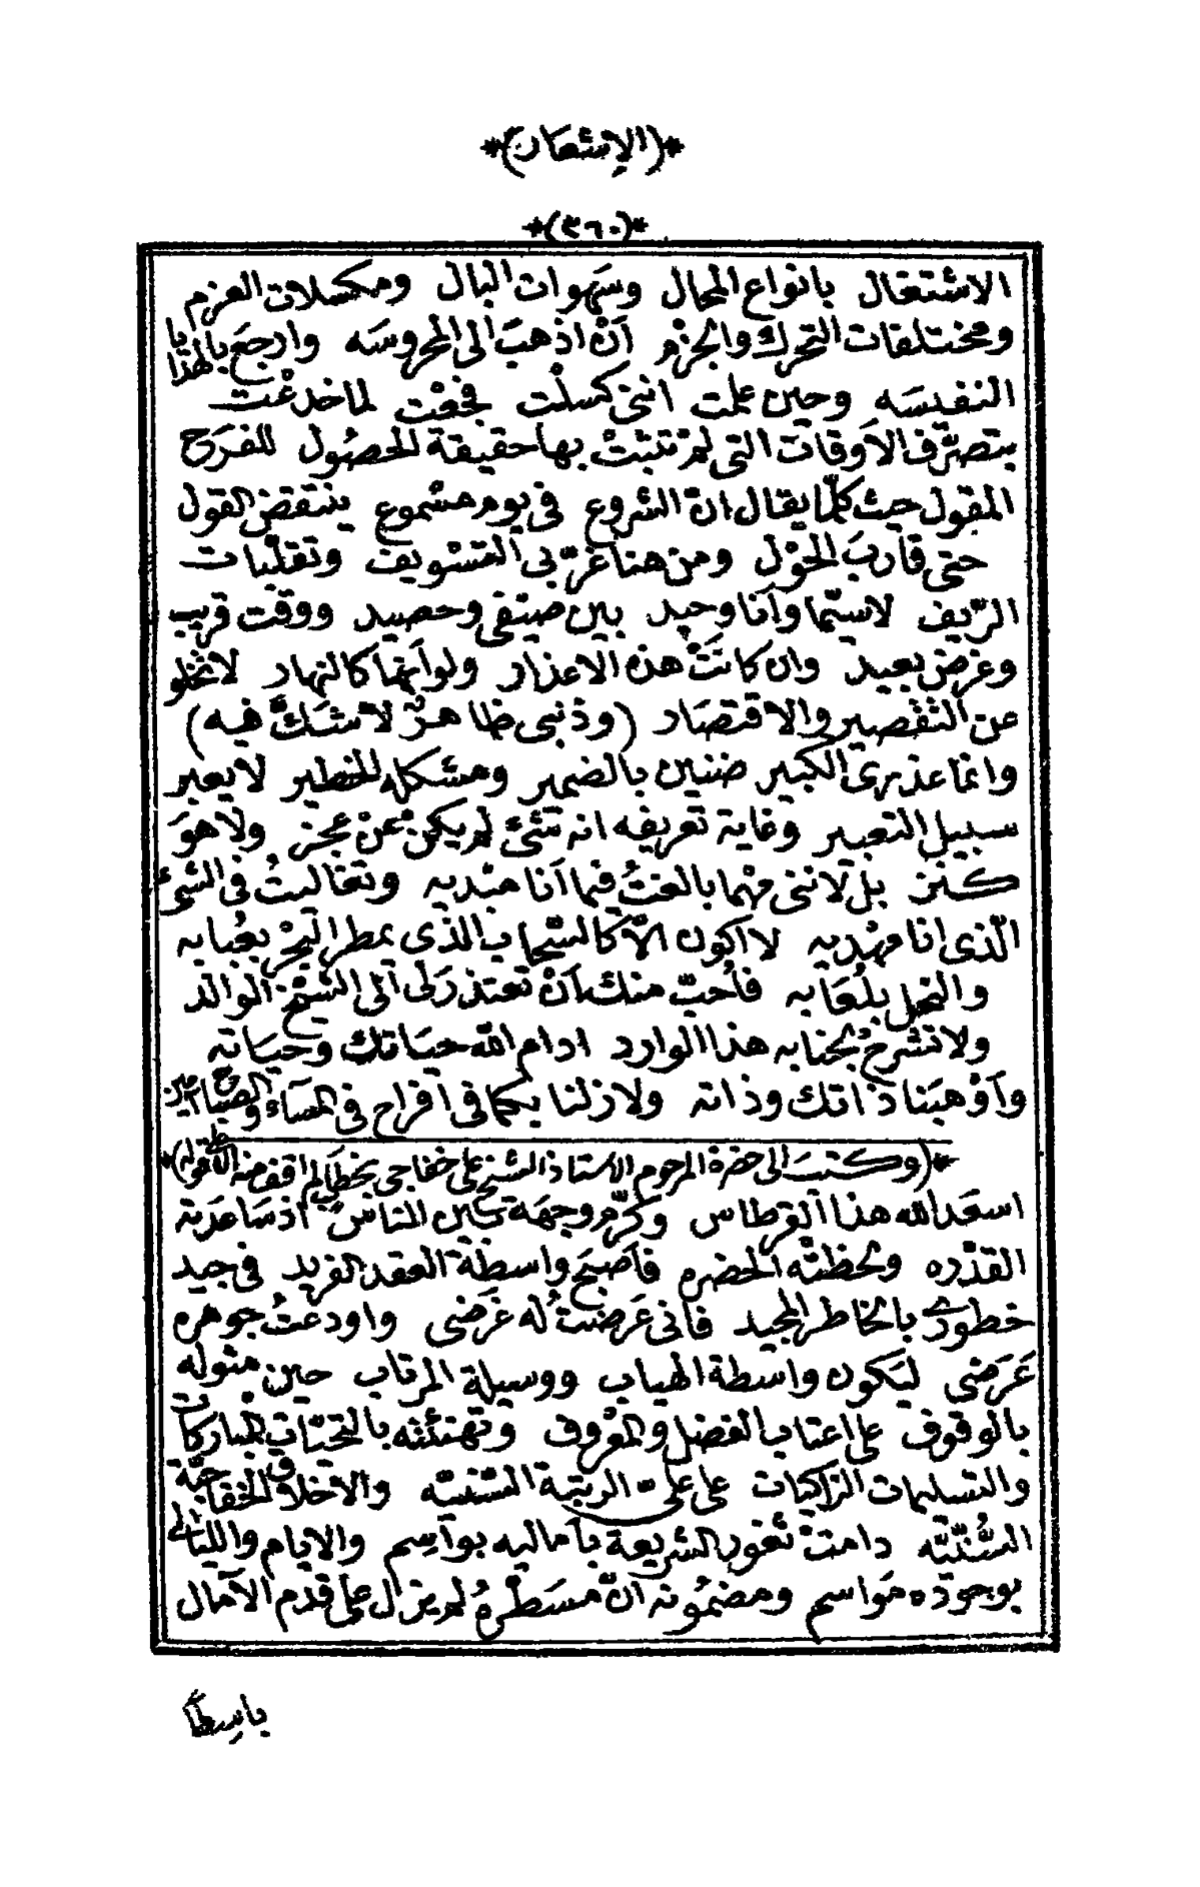 *(الإشعار)*
*(٣٦٠)*
الاشتغال بانواع المحال وسهوات البال ومكسلات العزم
ومختلقات التحرك والجزم أن اذهب الى المحروسه وارجع بالهدايا
النفيسه وحين علمت اننى كسلت فجعت لما خدعت
بتصرّف الأوقات التى لم تثبت بها حقيقة لحصول للفرح
المقول حيث كلّما يقال ان الشروع فى يوم مشموع ينتقض القول
حتى قارب الحول ومن هنا غرّ بى التسويف وتقلبات
الريف لاسيّما وأنا وحيد بين صيفى وحصيد ووقت قريب
وغرض بعيد وان كانت هذه الاعذار ولو أنها كالنهار لا تخلو
عن التقصير والاقتصار (وذنبى ظاهر لا شك فيه)
وانما عذرى الكبير ضنين بالضمير ومشكله للخطير لا يعبر
سبيل التعبير وغاية تعريفه انه شئ لم يكن عن عجز ولا هو
كنز بل لاننى مهما بالغت فيما أنا مبديه وتغاليت فى الشئ
الذى انا مهديه لا اكون الّا كالسحاب الذى يمطر البحر بعبابه
والنحل بلعابه فأحبّ منك أن تعتذر لى الى الشيخ الوالد
ولا تشرح لجنابه هذا الوارد ادام الله حياتك وحياته
وأوهبنا ذاتك وذاته ولا زلنا بكما فى افراح فى المساء والصباح امين
*(وكتبت الى حضرة المرحوم الاستاذ الشيخ على خفاجى بخطى لم اقف منه الا على قوله)*
اسعد الله هذا القرطاس وكرّم وجهه بين الناس اذ ساعدته
القدره ولحظته الحضره فأصبح واسطة العقد الفريد فى جيد
خطورى بالخاطر المجيد فانى عرضت له غرضى واودعت جوهره
عرضى ليكون واسطة الهياب ووسيلة المرتاب حين مثوله
بالوقوف على اعتاب الفضل والمعروف وتهنئته بالتحيات المباركات
والتسليمات الزاكيات على على الرتبة السنيه والاخلاق الخفاجيّة
السُّنيّه دامت ثغور الشريعة بأماليه بواسم والايام والليالى
بوجوده مواسم ومضمونه ان مسطره لم يزل على قدم الآمال
باسطًا